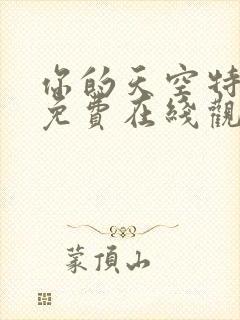 你的天空特
免費在綫觀
蒙頂山